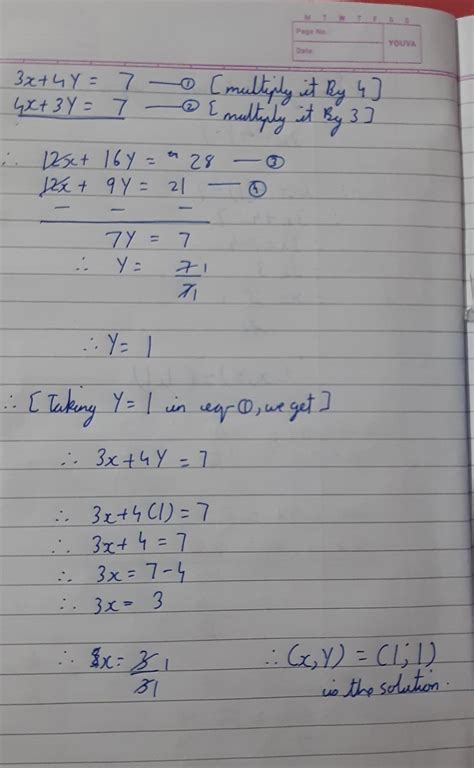 M T W T F S S
Page No.:
Date:
YOUVA
3x+4Y = 7 — ① [multiply it By 4]
4x+3Y = 7 — ② [multiply it By 3]
∴ 12x+ 16Y = 28 — ③
12x + 9Y = 21 — ④
— — —
7Y = 7
∴ Y = 7 1
7 1
∴ Y= 1
∴ [Taking Y=1 in eq-①, we get]
∴ 3x+4Y =7
∴ 3x+4(1)=7
∴ 3x+4 =7
∴ 3x = 7-4
∴ 3x= 3
∴ x= 3 1
3 1
∴ (x,Y) = (1,1)
is the solution.